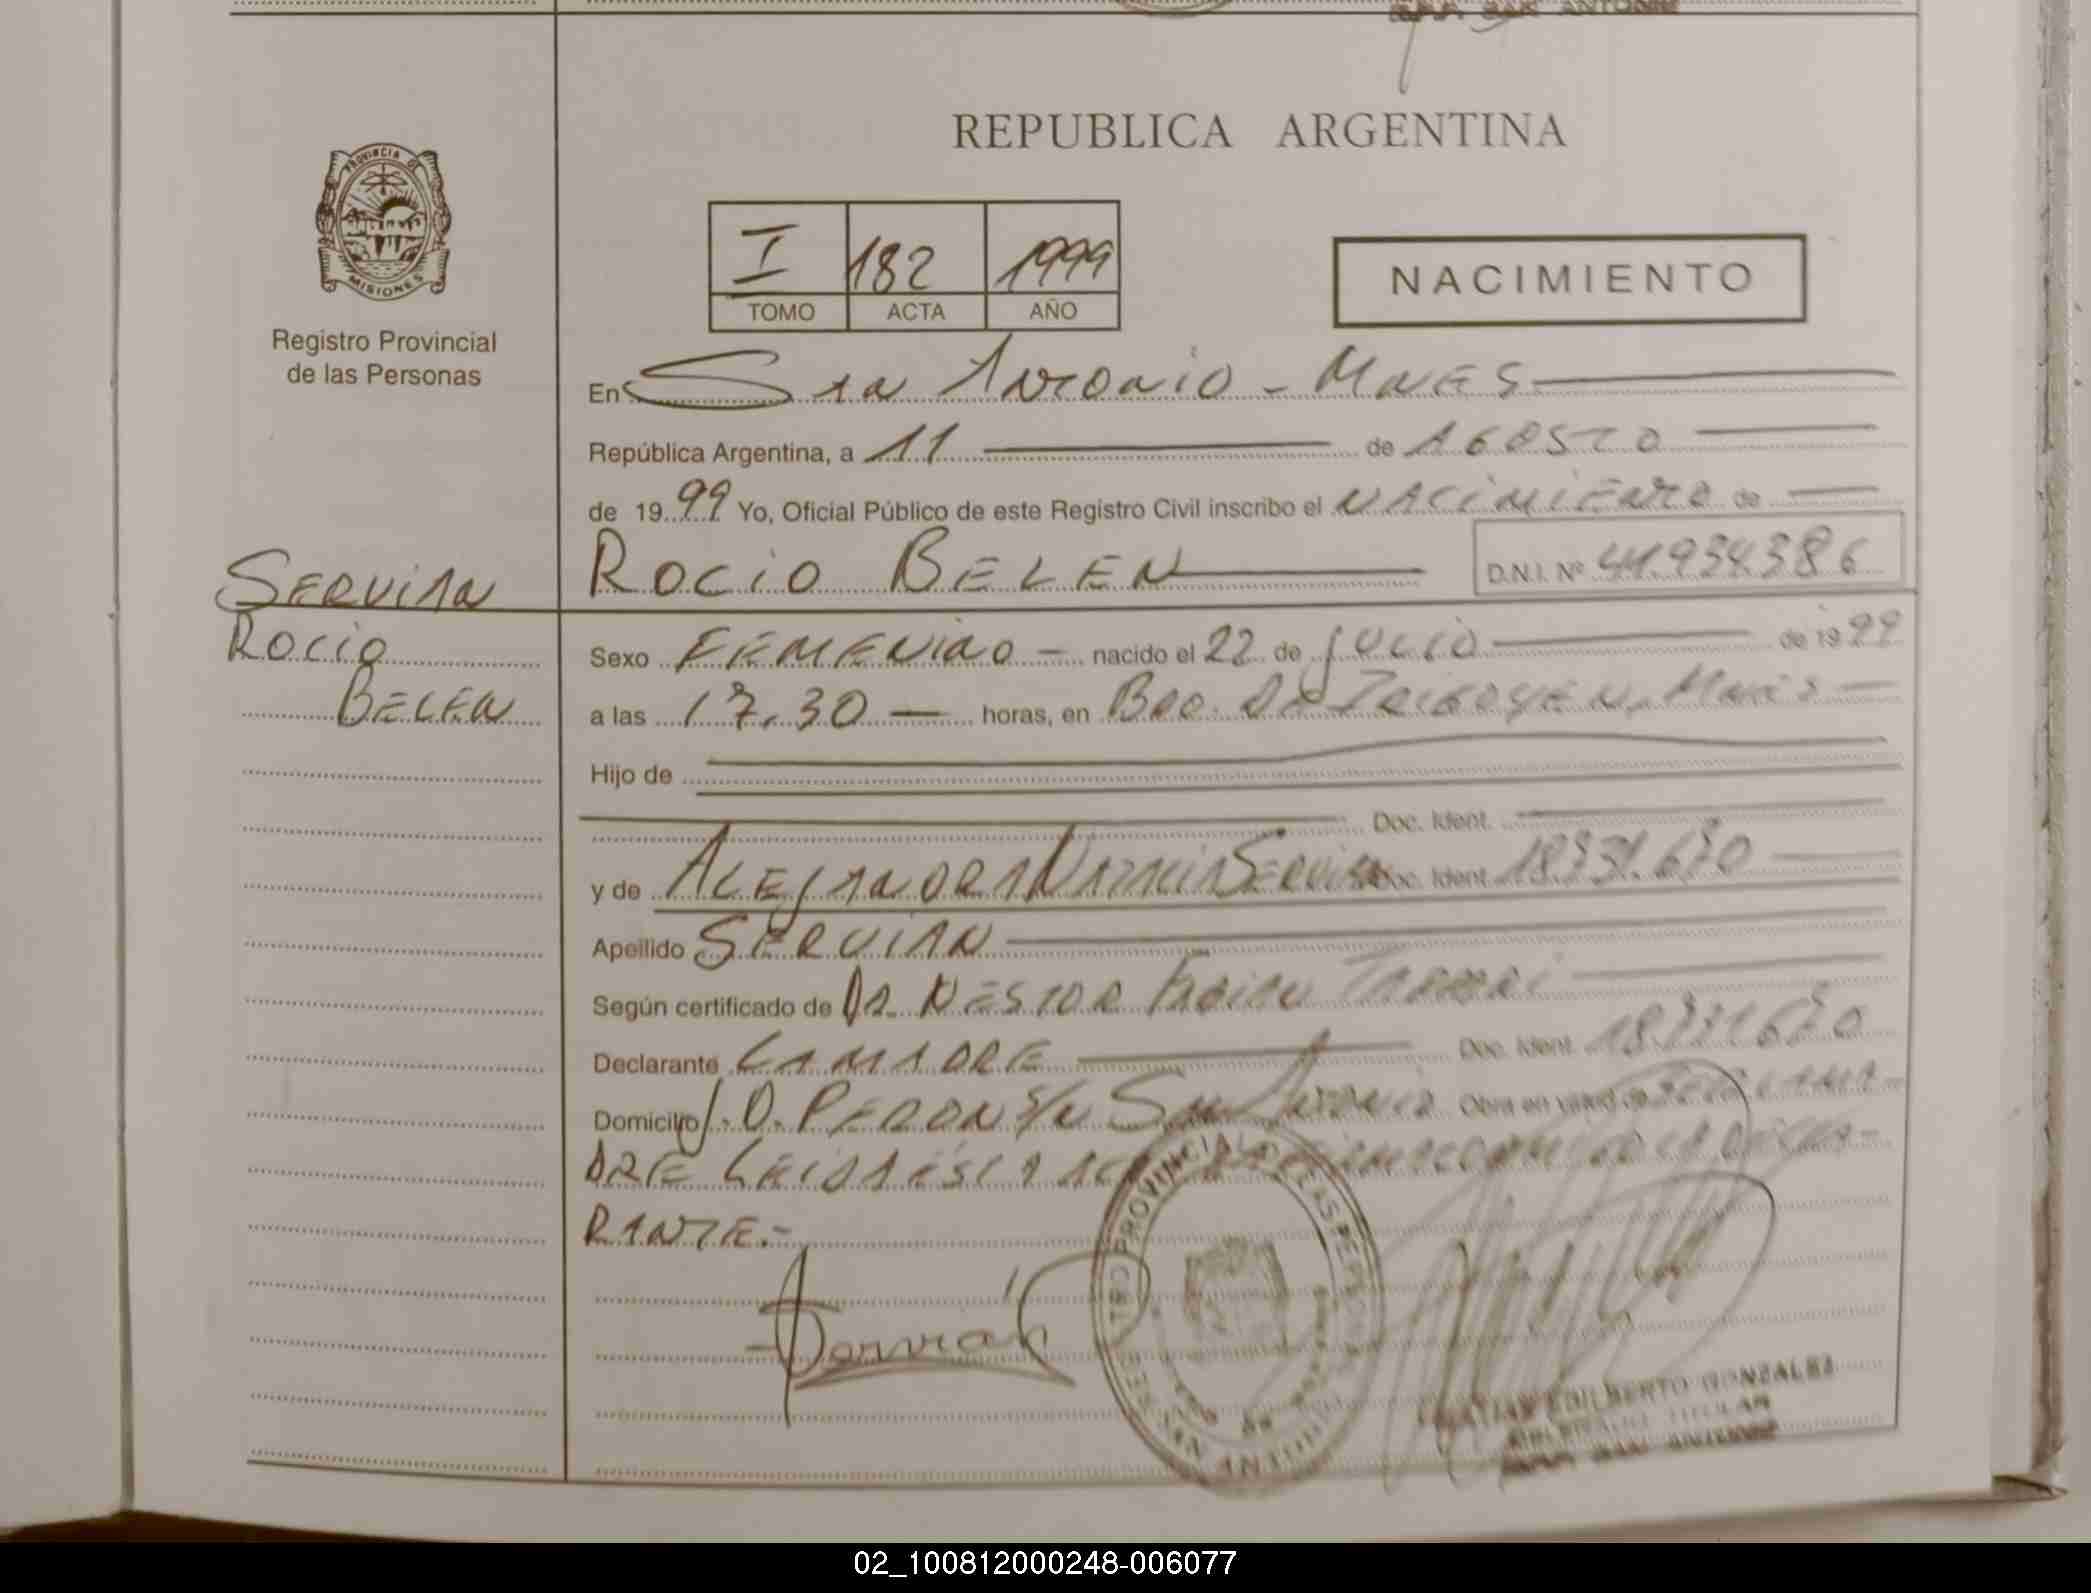 REPUBLICA ARGENTINA
PROVINCIA DE
MISIONES
Registro Provincial
de las Personas
I 182 1999
TOMO ACTA AÑO
NACIMIENTO
En San Antonio - Mnes
República Argentina, a 11 de Agosto
de 1999 Yo, Oficial Público de este Registro Civil inscribo el Nacimiento de
Rocio Belen
D.N.I. Nº 41.934.386
Servian
Rocio
Belen
Sexo Femenino - nacido el 22 de Julio de 1999
a las 17.30 horas, en Bdo. De Irigoyen, Mnes
Hijo de
Doc. Ident.
y de Alejandra Servian Doc. Ident. 18.731.670
Apellido Servian
Según certificado de Dr. Nestor Fabian
Declarante La Madre Doc. Ident. 18731670
Domicilio J.D. Peron S/N San Antonio Obra en virtud de Ser La Ma-
dre Leida esta acta
rante.-
Servian
EDILBERTO GONZALEZ
TITULAR
SAN ANTONIO
02_100812000248-006077